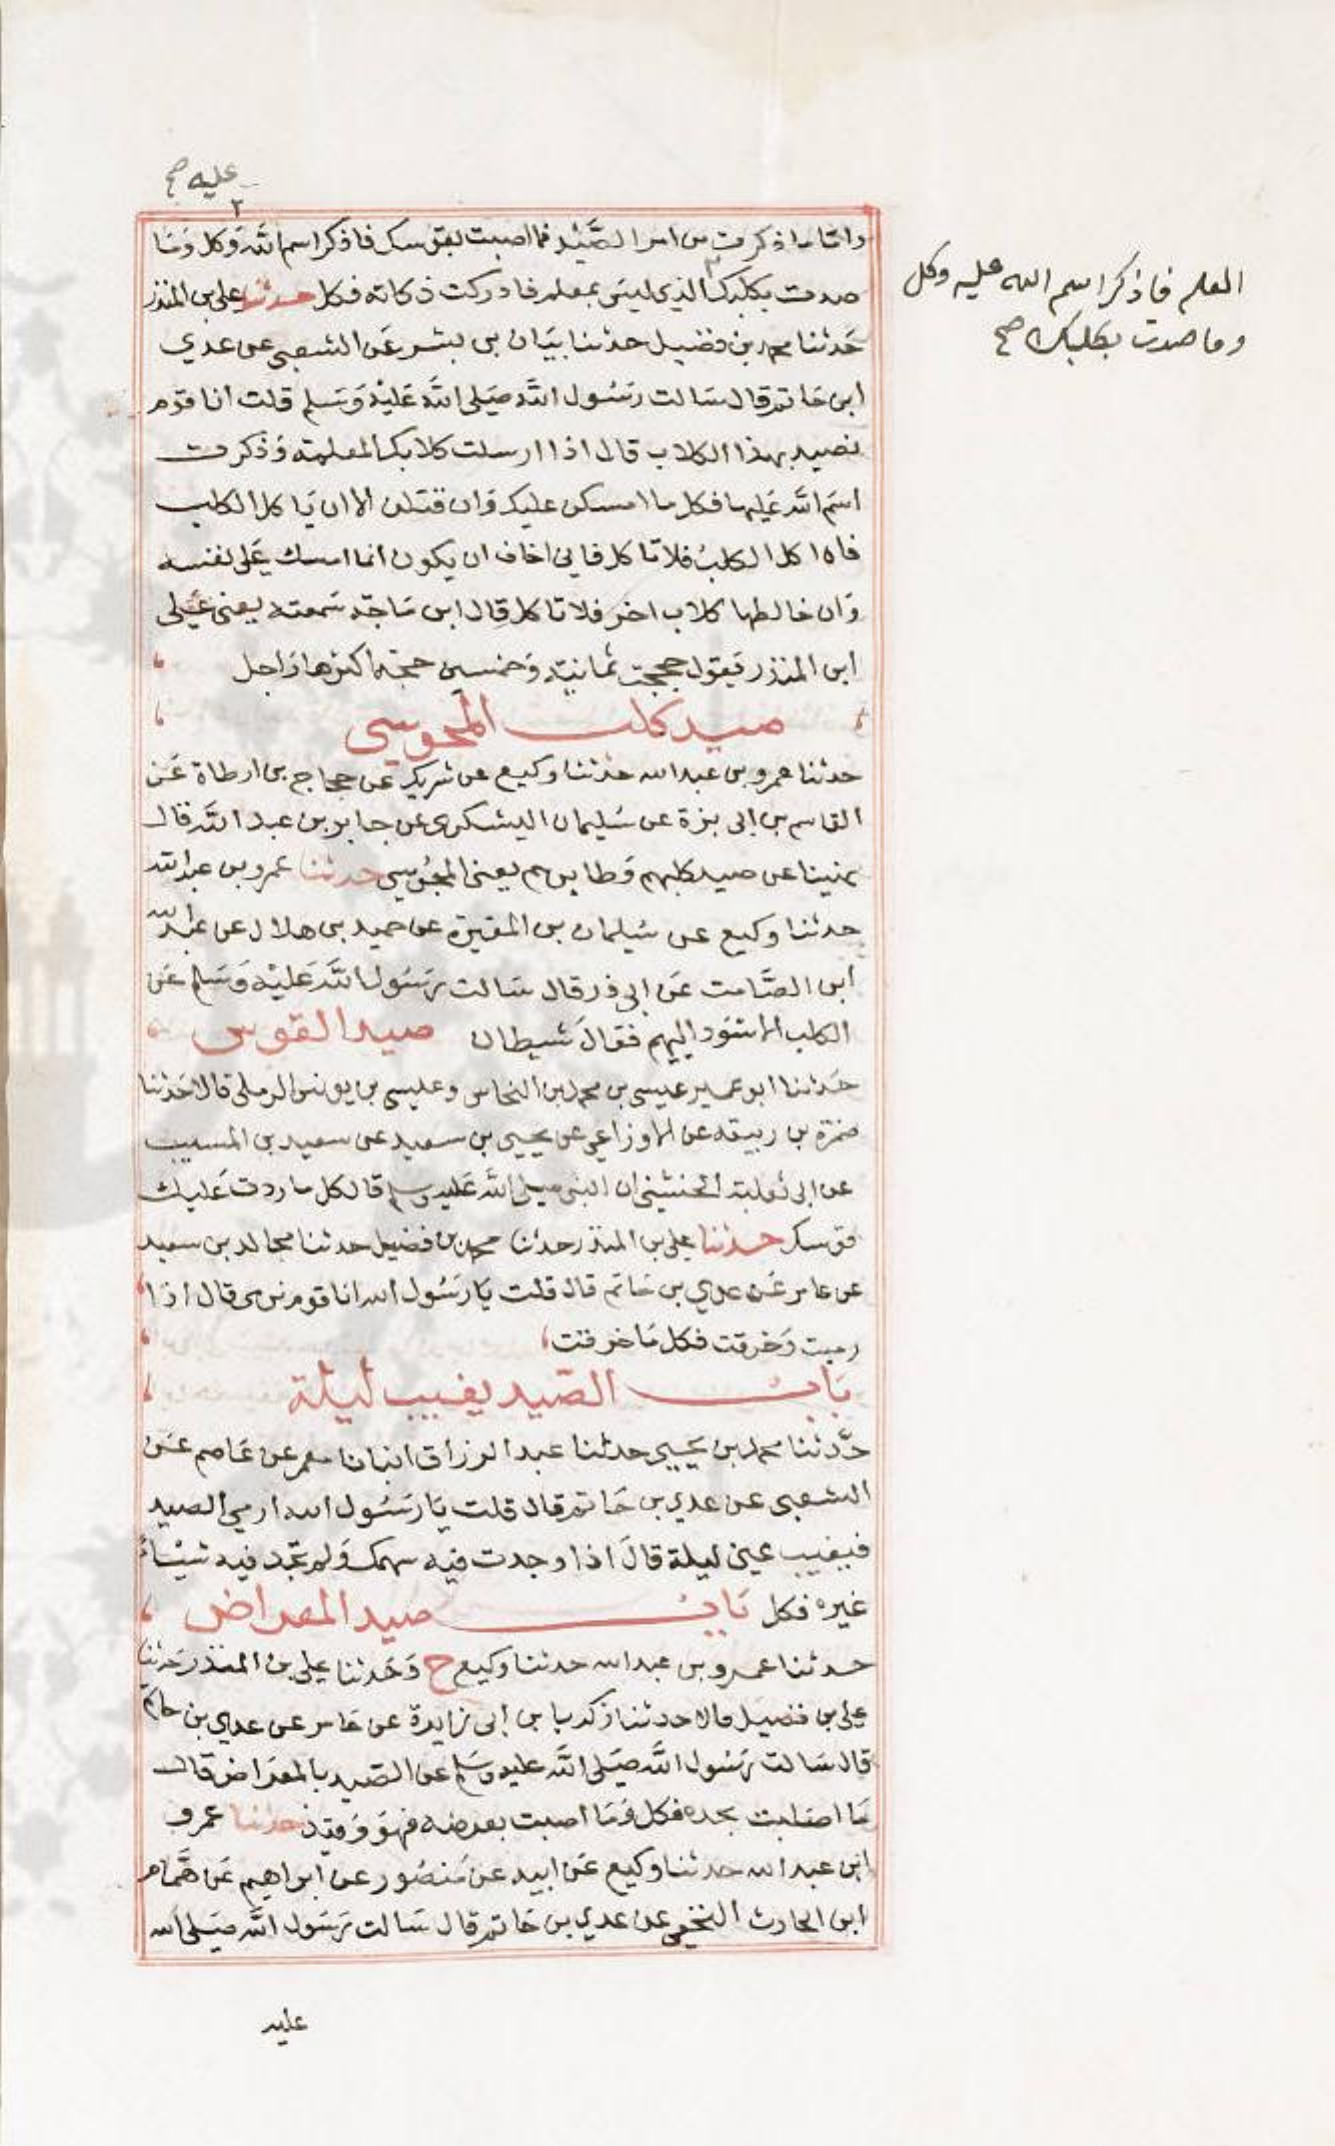 عليه صح
واما ما ذكرت من امر الصيد فما اصبت بقوسك فاذكر اسم الله وكل وما
صدت بكلبك الذي ليس بمعلم فادركت ذكاته فكل حدثنا علي بن المنذر
المعلم فاذكر اسم الله عليه وكل
وما صدت بكلبك صح
حدثنا محمد بن فضيل حدثنا بيان بن بشر عن الشعبي عن عدي
ابن حاتم قال سالت رسول الله صلى الله عليه وسلم قلت انا قوم
نصيد بهذا الكلاب قال اذا ارسلت كلابك المعلمة وذكرت
اسم الله عليها فكل ما امسكن عليك وان قتلن الا ان ياكل الكلب
فاذا اكل الكلب فلا تاكل فاني اخاف ان يكون انما امسك على نفسه
وان خالطها كلاب اخر فلا تاكل قال ابن ماجه سمعته يعني علي
ابن المنذر يقول حججت ثمانية وخمسين حجة اكثرها راجل
صيد كلب المجوسي
حدثنا عمرو بن عبد الله حدثنا وكيع عن شريك عن حجاج بن ارطاة عن
القاسم بن ابي بزة عن سليمان اليشكري عن جابر بن عبد الله قال
نهينا عن صيد كلبهم وطايرهم يعني المجوسي حدثنا عمرو بن عبد الله
حدثنا وكيع عن سليمان بن المغيرة عن حميد بن هلال عن عبد الله
ابن الصامت عن ابي ذر قال سالت رسول الله عليه وسلم عن
الكلب الاسود البهيم فقال شيطان صيد القوس
حدثنا ابو عمير عيسى بن محمد بن النحاس وعيسى بن يونس الرملي قالا حدثنا
ضمرة بن ربيعه عن الاوزاعي عن يحيى بن سعيد عن سعيد بن المسيب
عن ابي ثعلبة الخشني ان النبي صلى الله عليه وسلم قال كل ما ردت عليك
قوسك حدثنا علي بن المنذر حدثنا محمد بن فضيل حدثنا مجالد بن سعيد
عن عامر عن عدي بن حاتم قال قلت يا رسول الله انا قوم نرمي قال اذا
رميت وخرقت فكل ما خرقت
باب الصيد يغيب ليلة
حدثنا محمد بن يحيى حدثنا عبد الرزاق انبانا معمر عن عاصم عن
الشعبي عن عدي بن حاتم قال قلت يا رسول الله ارمي الصيد
فيغيب عني ليلة قال اذا وجدت فيه سهمك ولم تجد فيه شيئا
غيره فكل باب صيد المعراض
حدثنا عمرو بن عبد الله حدثنا وكيع ح وحدثنا علي بن المنذر حدثنا
علي بن فضيل قالا حدثنا زكريا بن ابي زايدة عن عامر عن عدي بن حاتم
قال سالت رسول الله صلى الله عليه وسلم عن الصيد بالمعراض قال
ما اصابت بحده فكل وما اصبت بعرضه فهو وقيذ حدثنا عمرو
ابن عبد الله حدثنا وكيع عن ابيه عن منصور عن ابراهيم عن همام
ابن الحارث النخعي عن عدي بن حاتم قال سالت رسول الله صلى الله
عليه